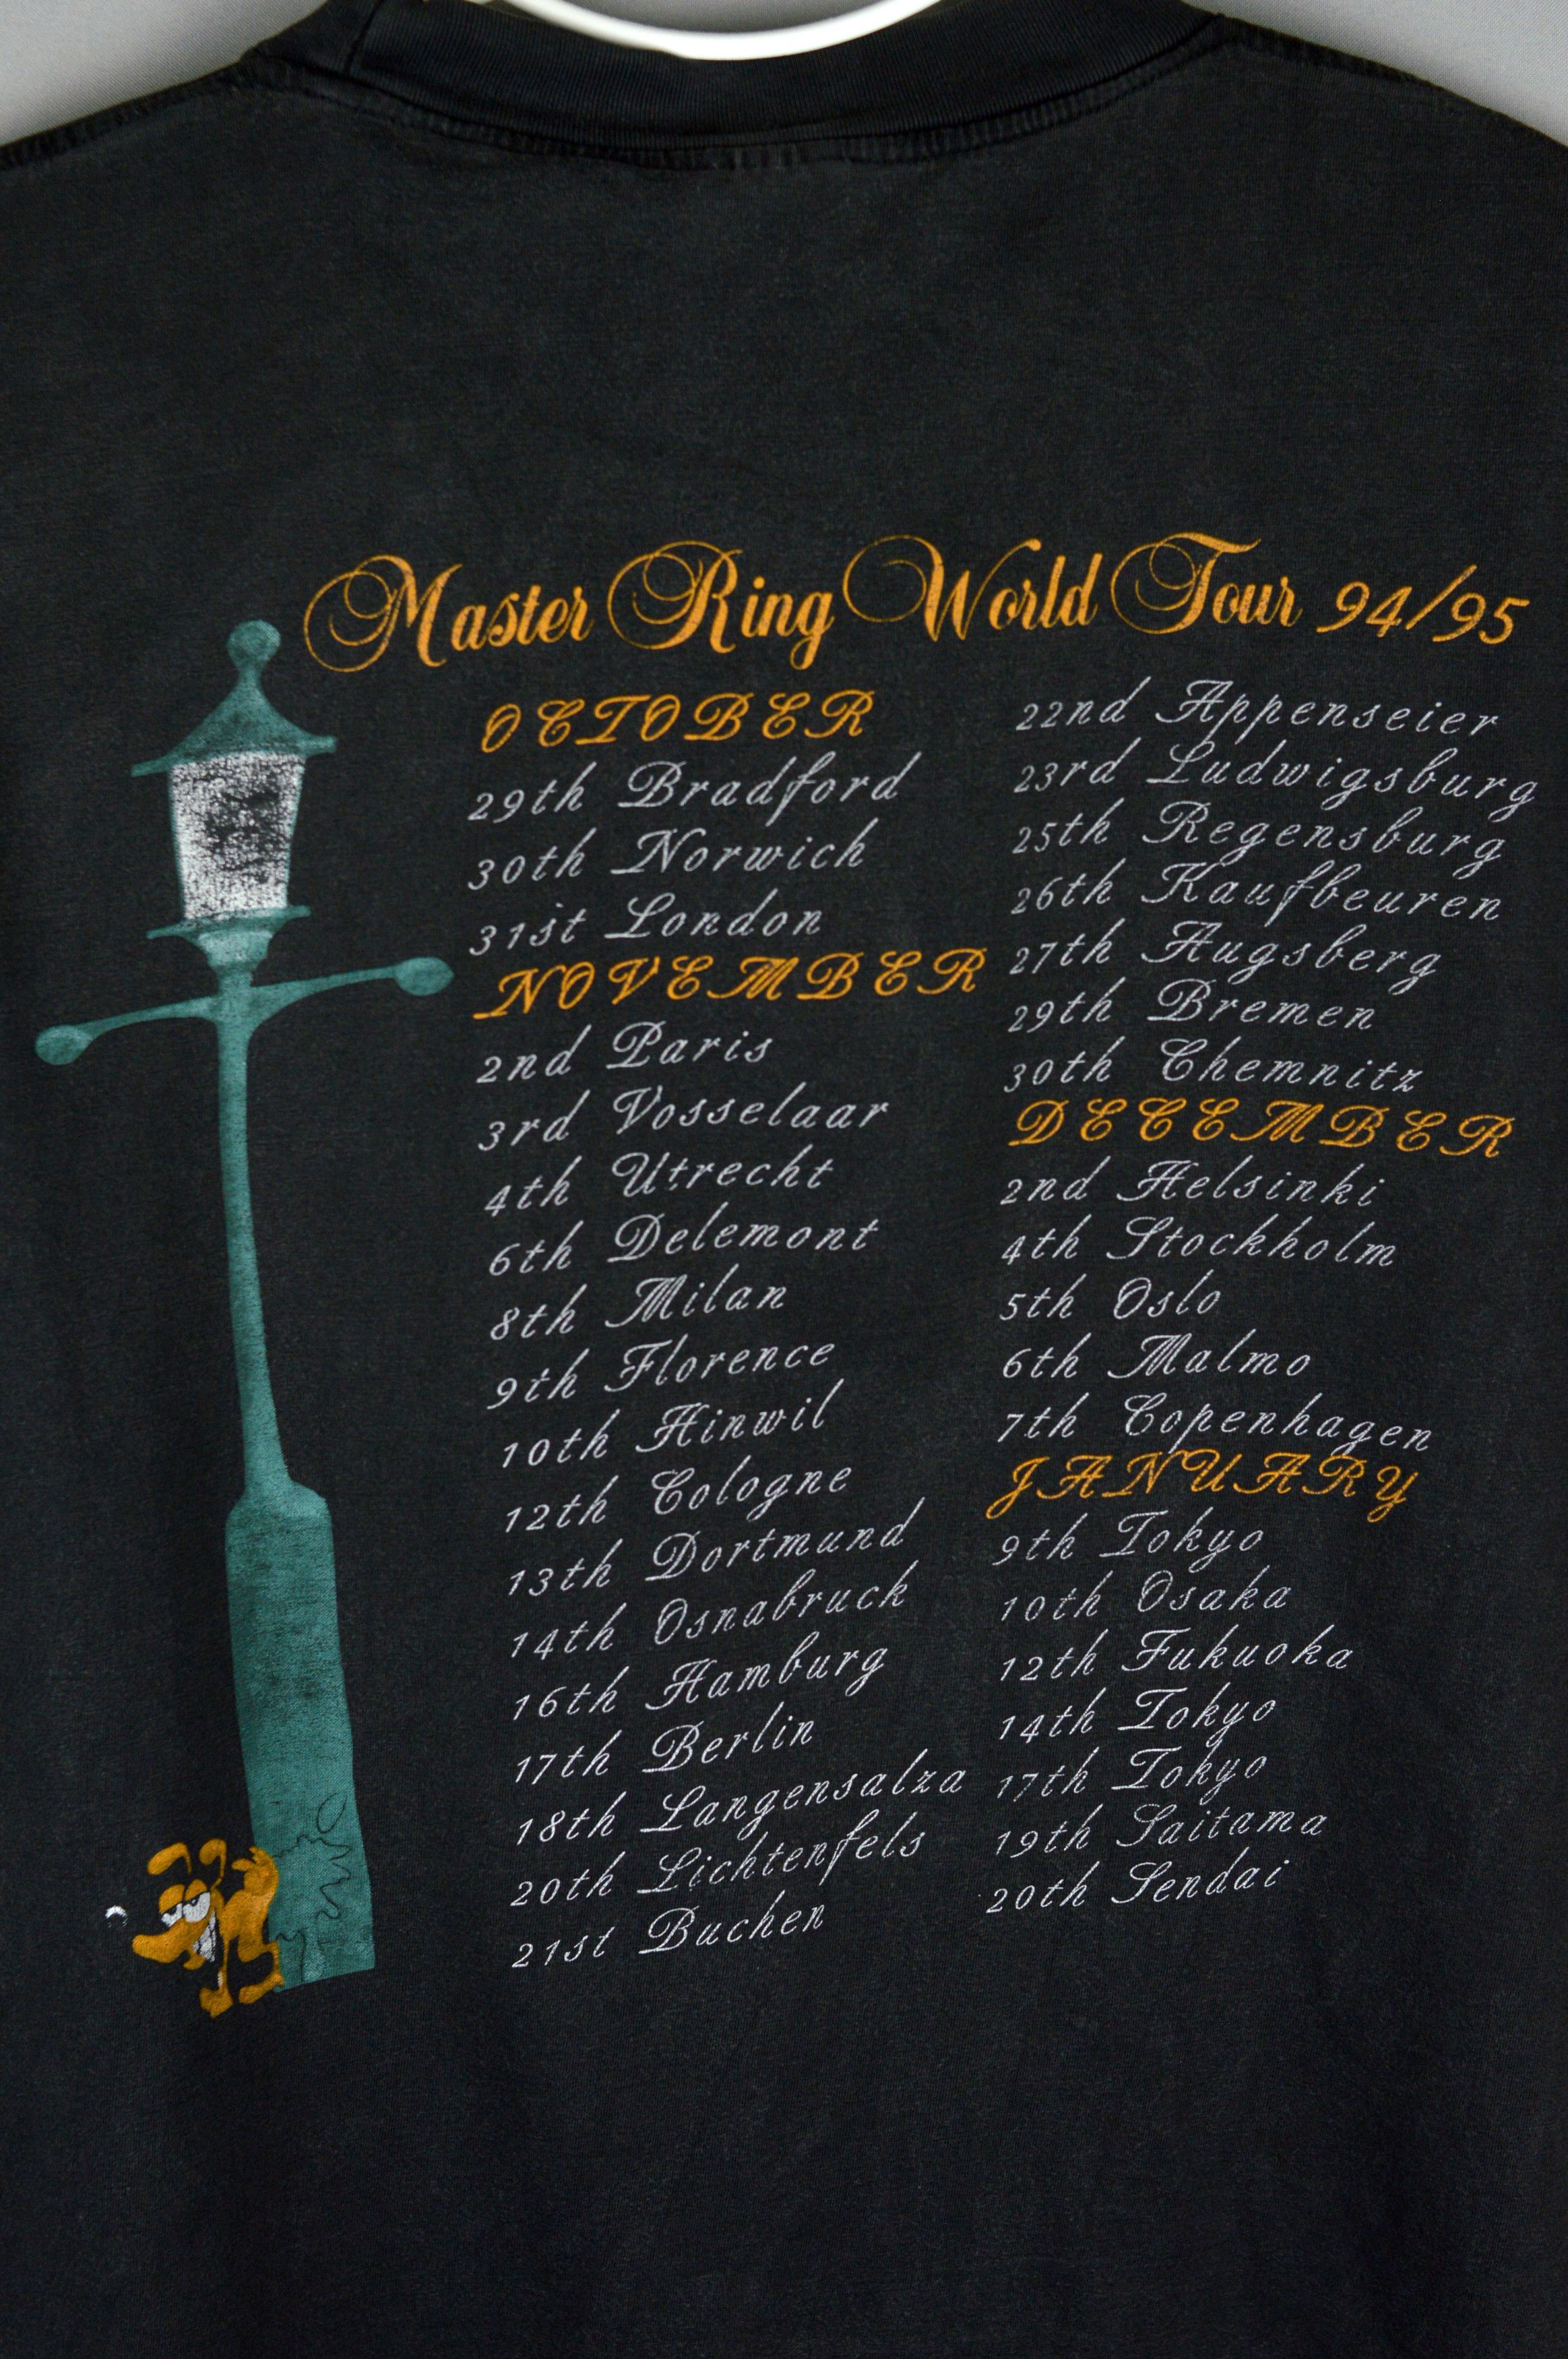 Master Ring World Tour 94/95
OCTOBER
29th Bradford
30th Norwich
31st London
NOVEMBER
2nd Paris
3rd Vosselaar
4th Utrecht
6th Delemont
8th Milan
9th Florence
10th Hinwil
12th Cologne
13th Dortmund
14th Osnabruck
16th Hamburg
17th Berlin
18th Langensalza
20th Lichtenfels
21st Buchen
22nd Appenseier
23rd Ludwigsburg
25th Regensburg
26th Kaufbeuren
27th Augsberg
29th Bremen
30th Chemnitz
DECEMBER
2nd Helsinki
4th Stockholm
5th Oslo
6th Malmo
7th Copenhagen
JANUARY
9th Tokyo
10th Osaka
12th Fukuoka
14th Tokyo
17th Tokyo
19th Saitama
20th Sendai